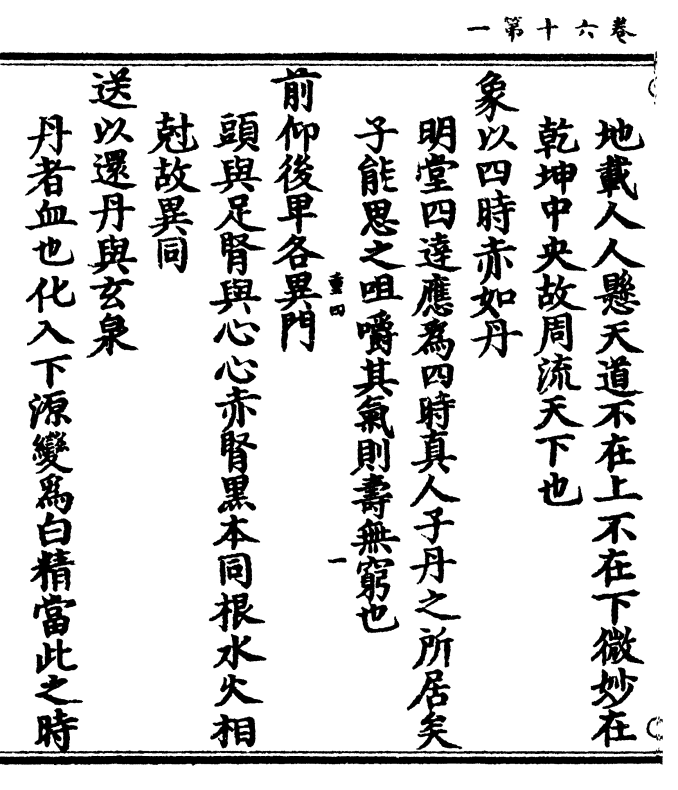 卷六十第一
地載人人懸天道不在上不在下微妙在
乾坤中央故周流天下也
象以四時赤如丹
明堂四達應為四時真人子丹之所居矣
子能思之咀嚼其氣則壽無窮也
重四
一
前仰後卑各異門
頭與足腎與心心赤腎黑本同根水火相
尅故異同
送以還丹與玄泉
丹者血也化入下源變為白精當此之時